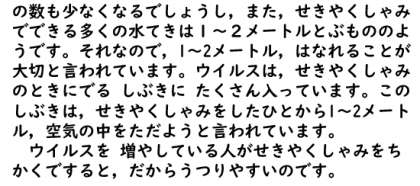 の数も少なくなるでしょうし，また，せきやくしゃみ
でできる多くの水てきは１～２メートルとぶもののよ
うです。それなので，1～2メートル，はなれることが
大切と言われています。ウイルスは，せきやくしゃみ
のときにでる しぶきに たくさん入っています。この
しぶきは，せきやくしゃみをしたひとから1～2メート
ル，空気の中をただようと言われています。
　ウイルスを 増やしている人がせきやくしゃみをち
かくですると，だからうつりやすいのです。